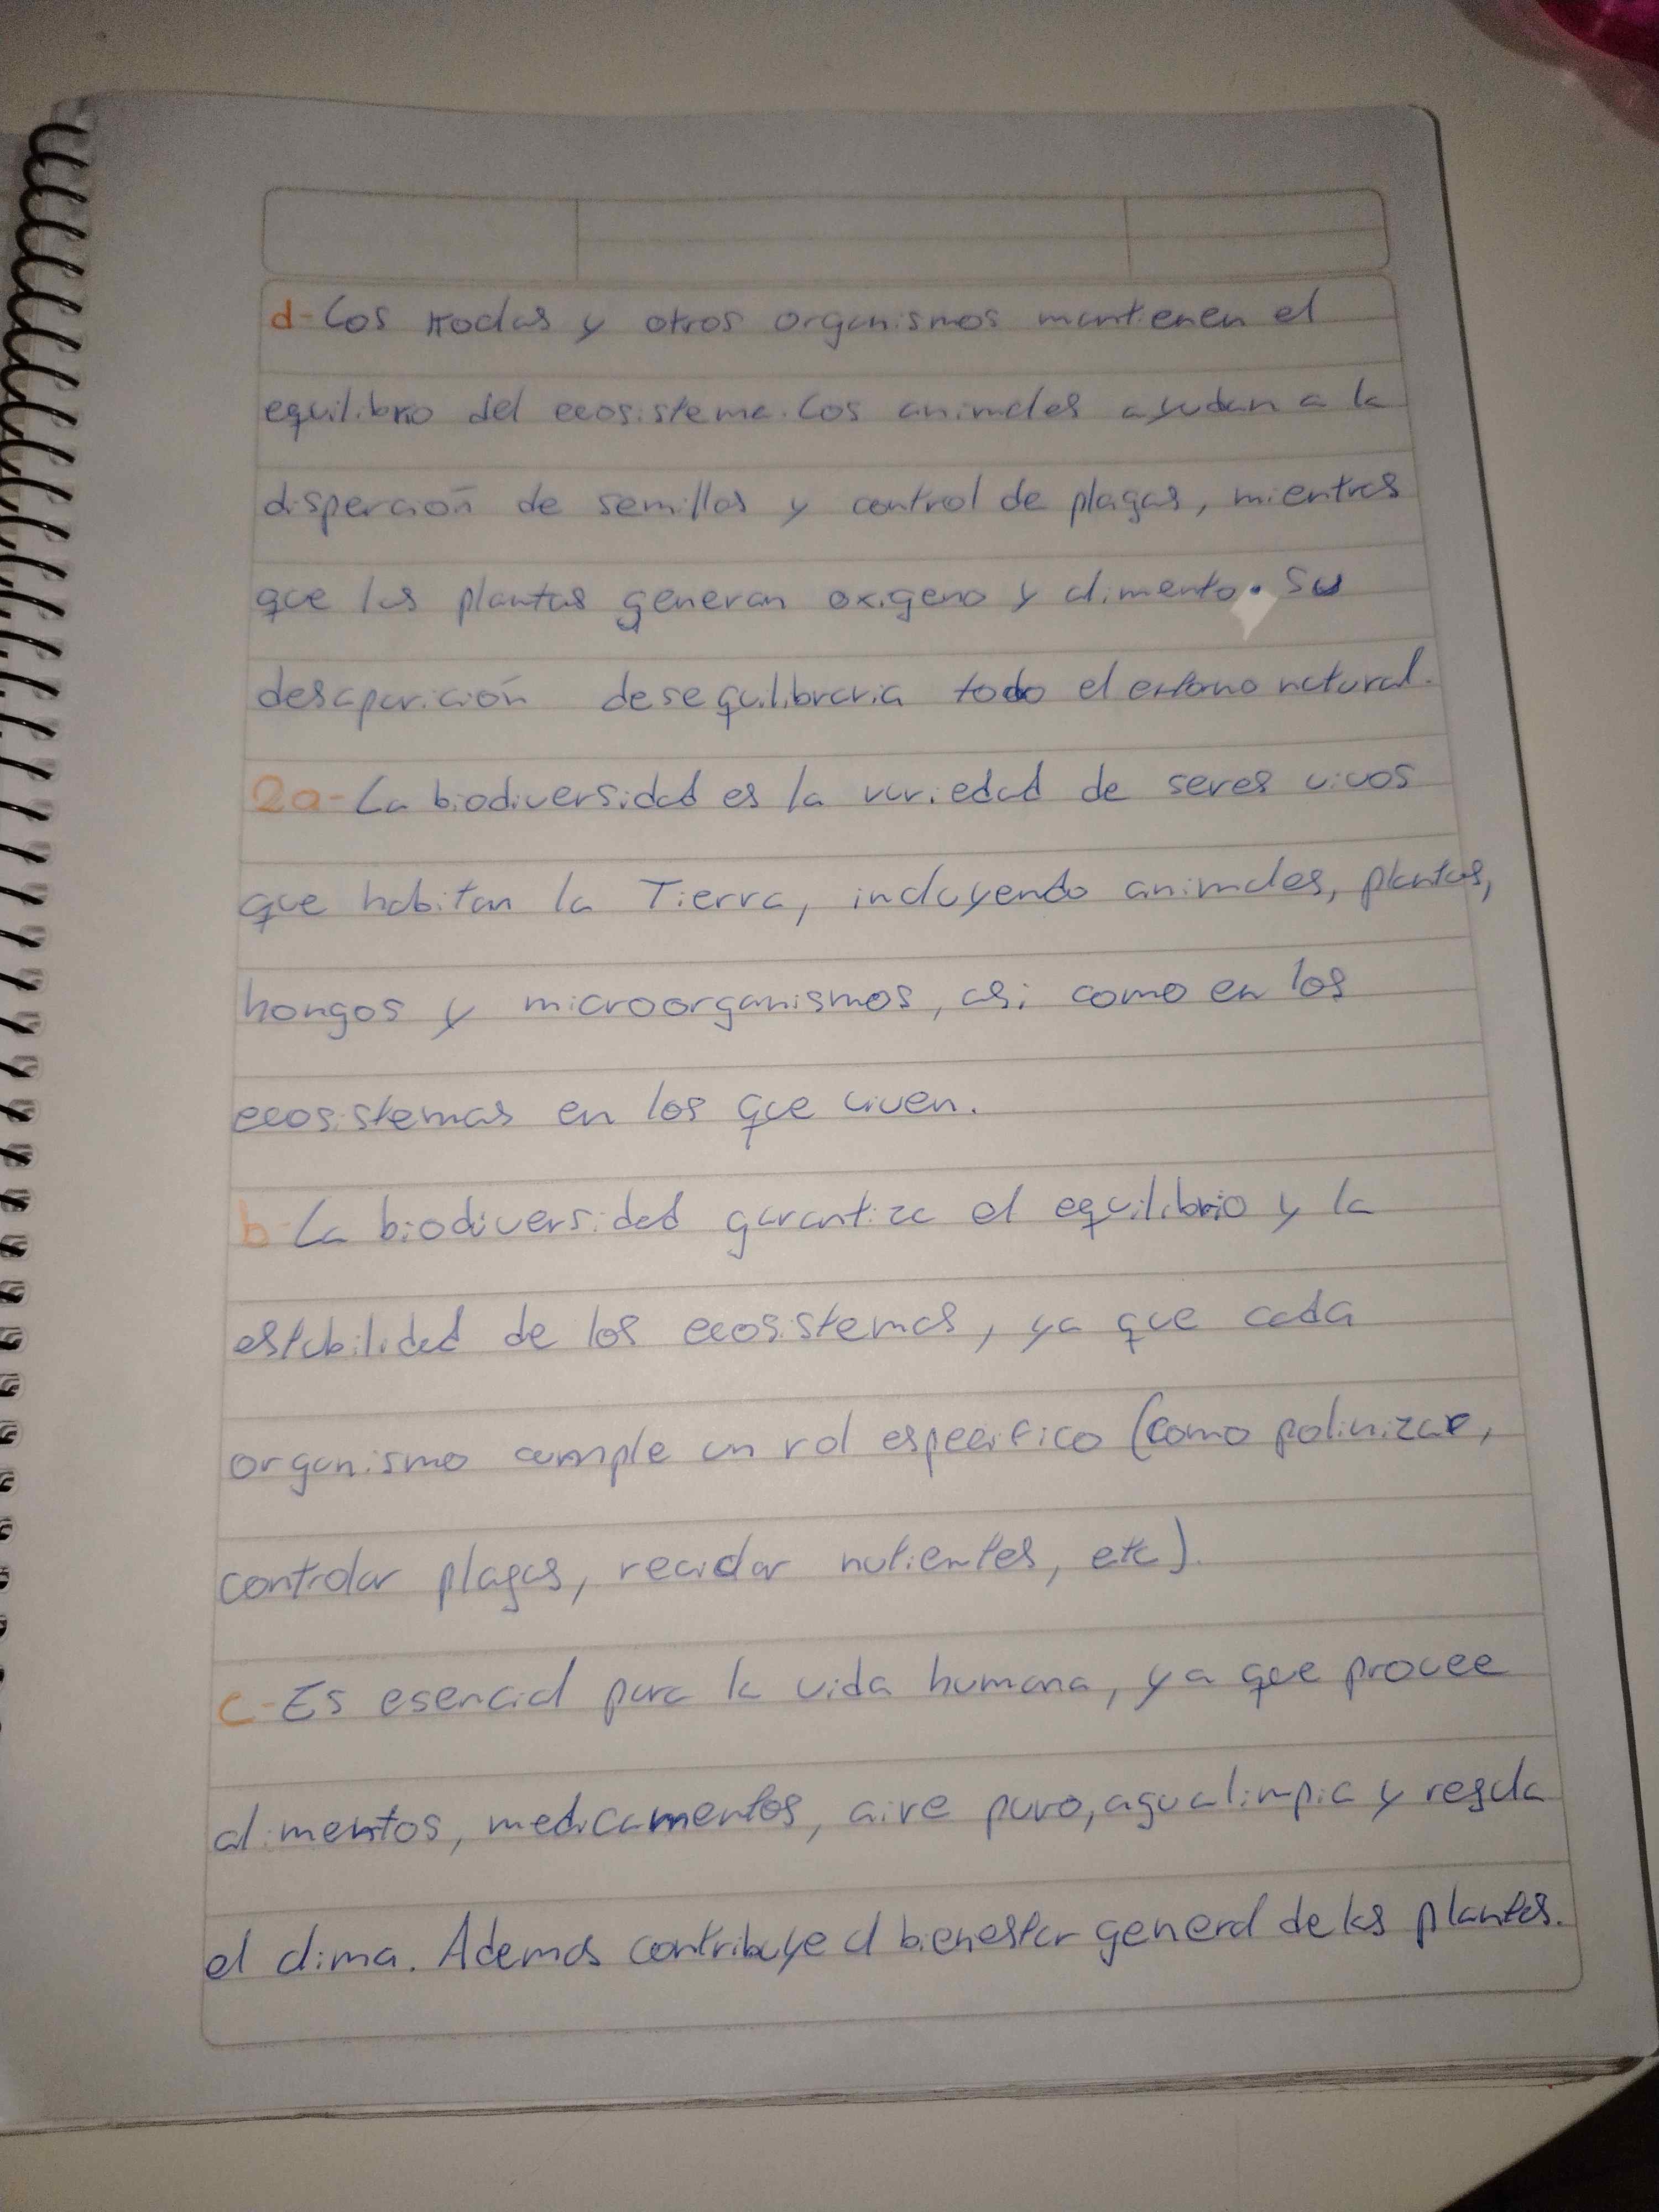 d- Los y otros organismos mantienen el
equilibrio del ecosistema. Los animales ayudan a la
disperción de semillas y control de plagas, mientras
que las plantas generan oxigeno y alimento. Su
desaparición desequilibraria todo el entorno natural.
2a- La biodiversidad es la variedad de seres vivos
que habitan la Tierra, incluyendo animales, plantas,
hongos y microorganismos, asi como en los
ecosistemas en los que viven.
b- La biodiversidad garantiza el equilibrio y la
estabilidad de los ecosistemas, ya que cada
organismo cumple un rol especifico (como polinizar,
controlar plagas, reciclar nutientes, etc).
c- Es esencial para la vida humana, ya que provee
alimentos, medicamentos, aire puro, agua limpia y regula
el clima. Ademas contribuye al bienestar general de las plantas.